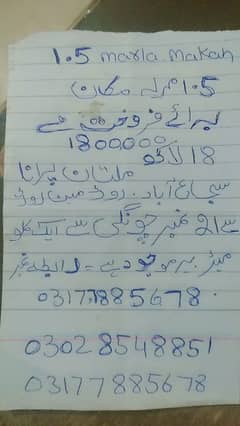 1.5 marla makan
1.5 مرلہ مکان
برائے فروخت ہے
1800000
18 لاکھ
ملتان پرانا
شجاع آباد روڈ مین روڈ
سے 21 نمبر چونگی سے ایک کلو
میٹر پر موجود ہے - رابطہ نمبر
03177885678
03028548851
03177885678